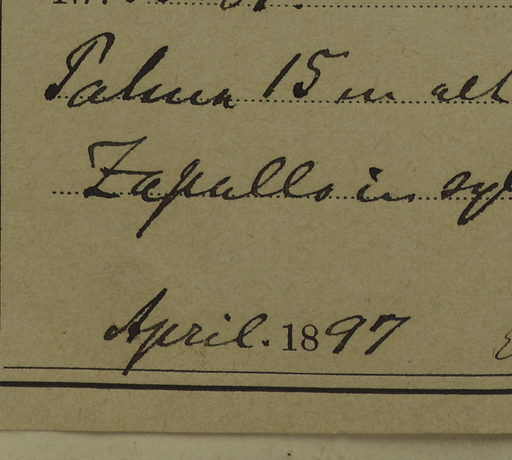 Palma 15 m alt
Zapallo in syl
April. 1897